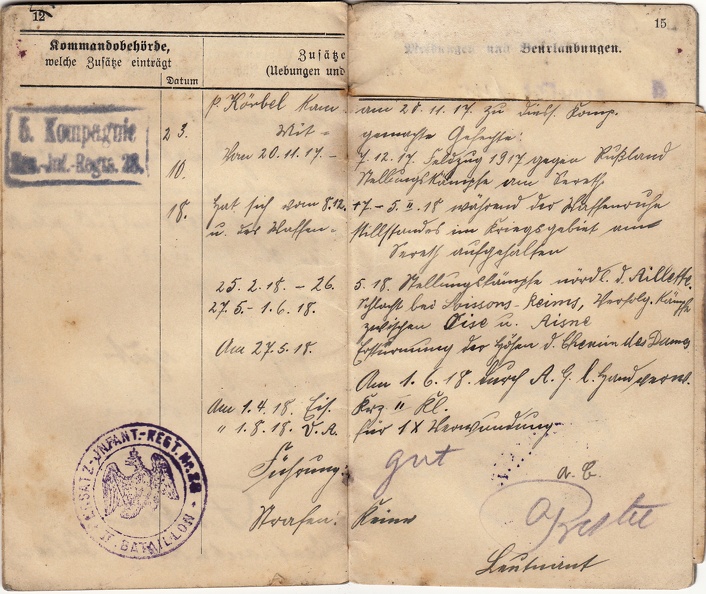 12
15
Kommandobehörde,
welche Zusätze einträgt
Datum
Zusätze
(Uebungen und
Meldungen und Beurlaubungen.
5. Kompagnie
Res.-Inf.-Regts. 28.
23.
10.
18.
p. Körbel kam am 20.11.17. zu dies. Komp.
Mit- gemachte Gefechte:
Vom 20.11.17.- 7.12.17. Feldzug 1917 gegen Rußland
Stellungskämpfe am Sereth
Hat sich vom 8.12.17 - 5.II.18 während der Waffenruhe
u. des Waffen- stillstandes im Kriegsgebiet am
Sereth aufgehalten
25.2.18. - 26.5.18. Stellungskämpfe nördl. d. Ailette
27.5.- 1.6.18. Schlacht bei Soissons-Reims, Verfolg. Kämpfe
zwischen Oise u. Aisne
Am 27.5.18. Erstürmung der Höhen d. Chemin des Dames
Am 1.6.18. durch A.G. l. Hand verw.
Am 1.4.18. Eis. Krz II Kl.
" 1.8.18. V.A. für 1X Verwundung.
Führung: gut
a. B.
Strafen: Keine
Leutnant
ERSATZ-INFANT.-REGT. NR. 28
BATAILLON